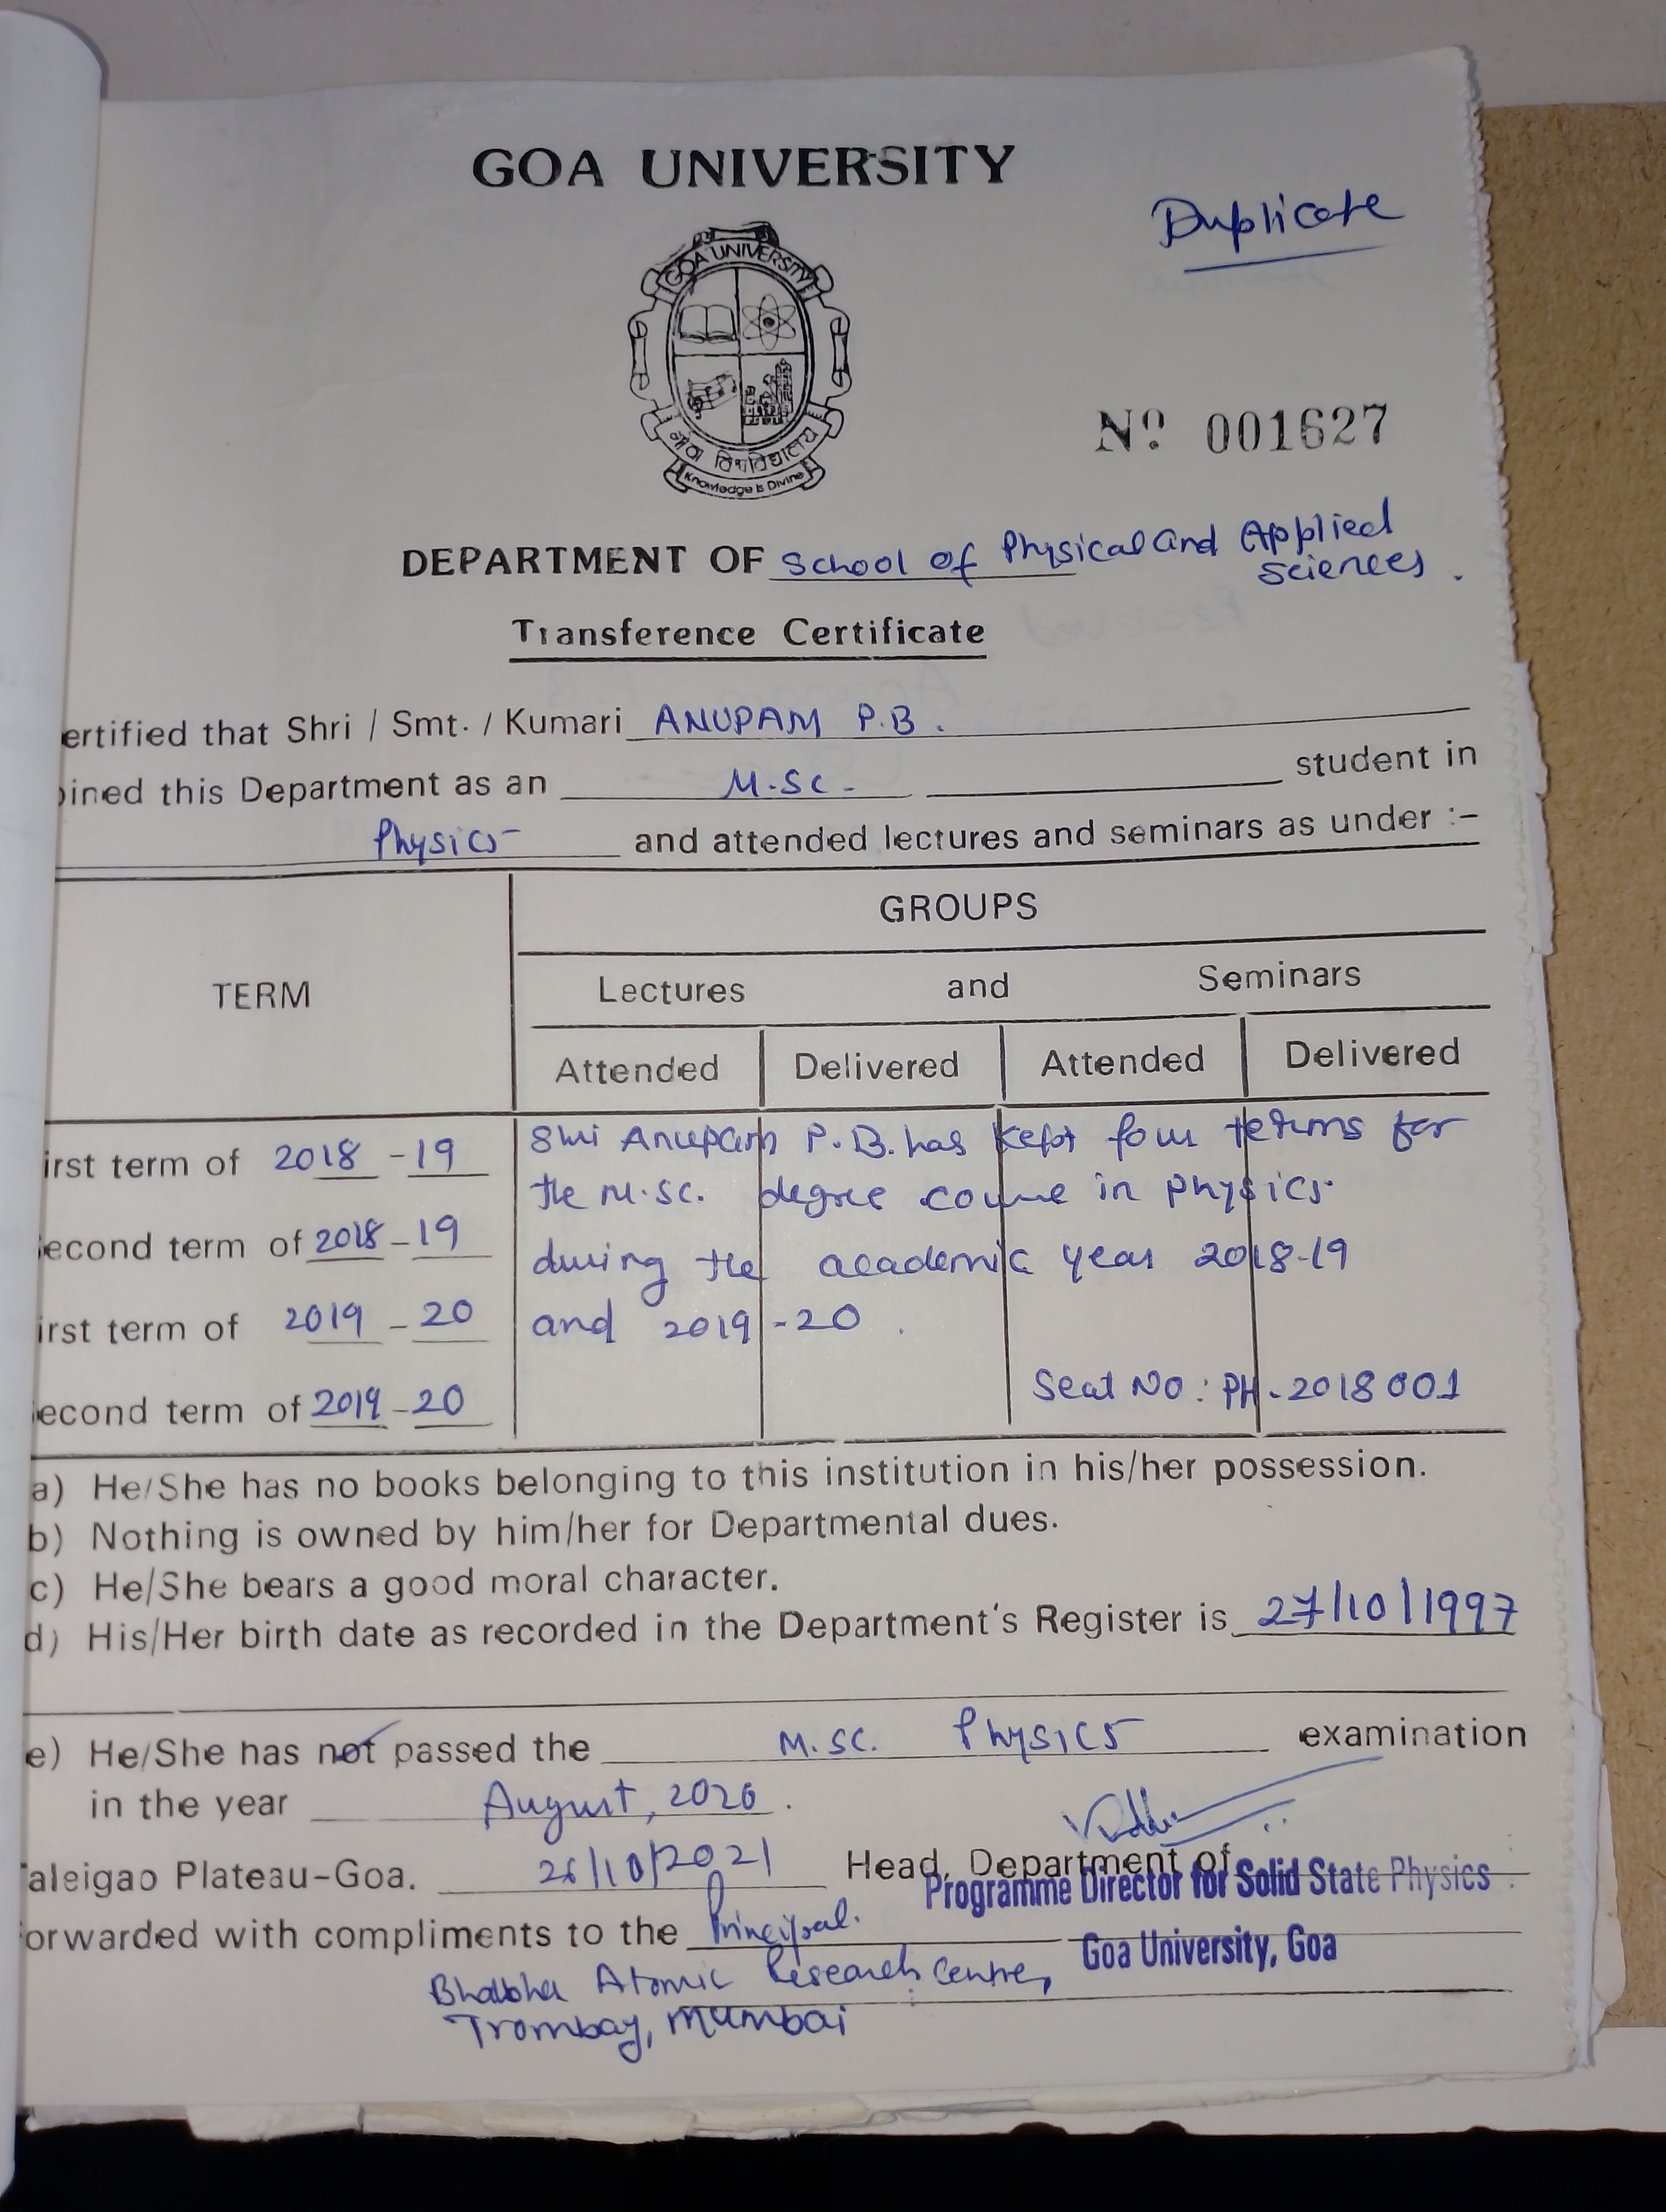 GOA UNIVERSITY
Duplicate
GOA UNIVERSITY
गोंवा विश्वविद्यालय
Knowledge is Divine
Nº 001627
DEPARTMENT OF School of Physical and Applied
Sciences.
Transference Certificate
ertified that Shri / Smt. / Kumari ANUPAM P.B.
ined this Department as an M.Sc. student in
Physics and attended lectures and seminars as under :-
GROUPS
TERM
Lectures and Seminars
Attended Delivered Attended Delivered
irst term of 2018-19 Shri Anupam P.B. has kept four terms for
the M.Sc. degree course in physics
econd term of 2018-19 during the academic year 2018-19
irst term of 2019-20 and 2019-20.
econd term of 2019-20 Seat No: PH-2018001
a) He/She has no books belonging to this institution in his/her possession.
b) Nothing is owned by him/her for Departmental dues.
c) He/She bears a good moral character.
d) His/Her birth date as recorded in the Department's Register is 27/10/1997
e) He/She has not passed the M.Sc. Physics examination
in the year August, 2020.
aleigao Plateau-Goa. 26/10/2021 Head, Department of
Programme Director for Solid State Physics
orwarded with compliments to the Principal.
Goa University, Goa
Bhabha Atomic Research Centre,
Trombay, Mumbai